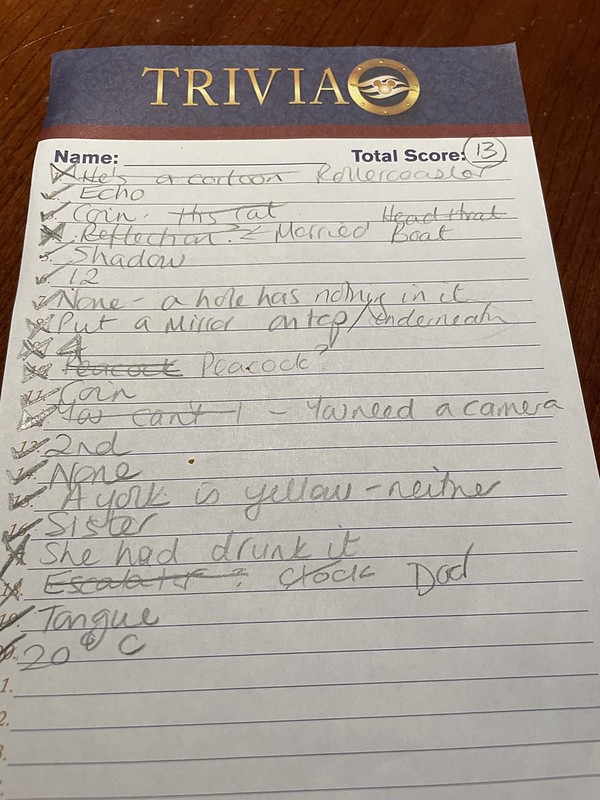 TRIVIA
Name: Total Score: 13
He's a cartoon Rollercoaster
Echo
Coin. Hat
Reflection? Married Boat
5. Shadow
6. 12
7. None - a hole has nothing in it
8. Put a Mirror on top/underneath
9. 4
10. Peacock Peacock?
11. Coin
You can't - You need a camera
13. 2nd
14. None
15. A york is yellow - neither
16. Sister
She had drunk it
18. Escalator? Clock Dad
19. Tongue
20. 20° C
1.
2.
3.